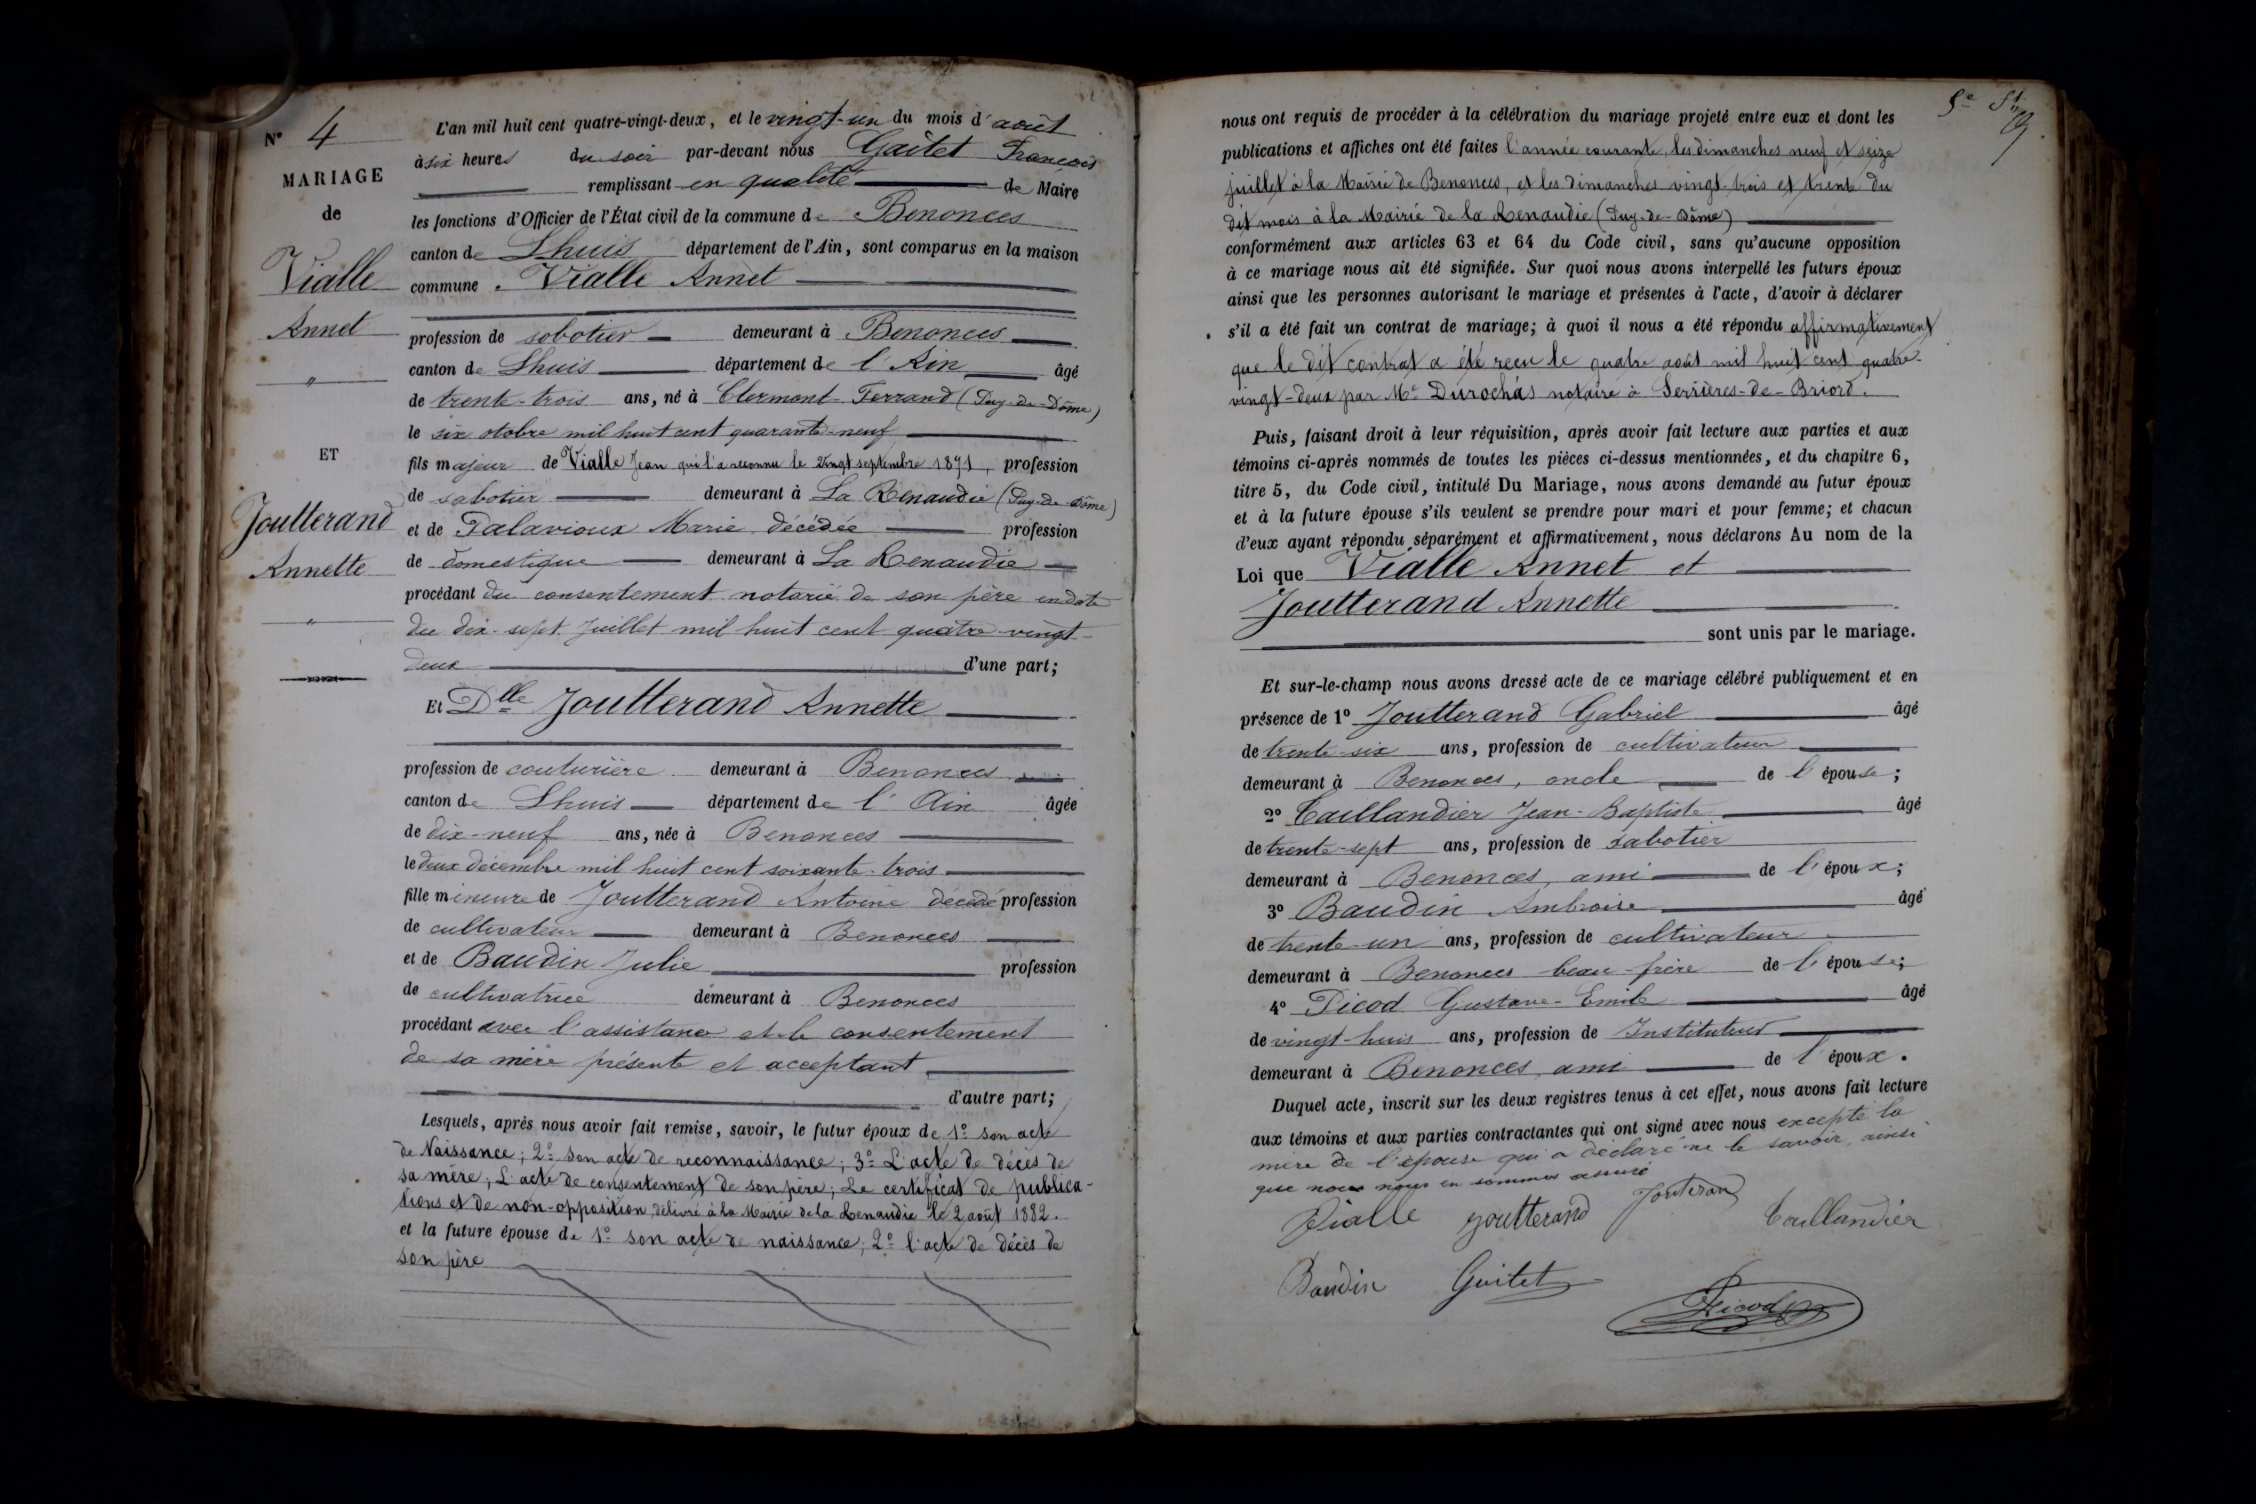 N° 4
MARIAGE
de
Vialle
Annet
"
ET
Joutterand
Annette
"
L'an mil huit cent quatre-vingt-deux, et le vingt-un du mois d'août
à six heures du soir par-devant nous Gaitet François
remplissant en qualité de Maire
les fonctions d'Officier de l'État civil de la commune de Benonces
canton de Lhuis département de l'Ain, sont comparus en la maison
commune. Vialle Annet
profession de sobotier demeurant à Benonces
canton de Lhuis département de l'Ain âgé
de trente-trois ans, né à Clermont-Ferrand (Puy-de-Dôme)
le six otobre mil huit cent quarante-neuf
fils majeur de Vialle Jean qui l'a reconnu le vingt septembre 1871, profession
de sabotier demeurant à La Renaudie (Puy-de-Dôme)
et de Palavioux Marie décédée profession
de domestique demeurant à La Renaudie
procédant du consentement notarié de son père en date
du dix-sept Juillet mil huit cent quatre-vingt-
deux d'une part;
Et Dlle Joutterand Annette
profession de couturière demeurant à Benonces
canton de Lhuis département de l'Ain âgée
de dix-neuf ans, née à Benonces
le deux décembre mil huit cent soixante-trois
fille mineure de Joutterand Antoine décédé profession
de cultivateur demeurant à Benonces
et de Baudin Julie profession
de cultivatrice demeurant à Benonces
procédant avec l'assistance et le consentement
de sa mère présente et acceptant
d'autre part;
Lesquels, après nous avoir fait remise, savoir, le futur époux de 1° son acte
de Naissance; 2° son acte de reconnaissance; 3° L'acte de décès de
sa mère; L'acte de consentement de son père; Le certificat de publica-
tions et de non-opposition délivré à la Mairie de la Renaudie le 2 août 1882.
et la future épouse de 1° son acte de naissance; 2° l'acte de décès de
son père
nous ont requis de procéder à la célébration du mariage projeté entre eux et dont les
publications et affiches ont été faites l'année courante, les dimanches neuf et seize
juillet à la Mairie de Benonces, et les dimanches vingt-trois et trente du
dit mois à la Mairie de la Renaudie (Puy-de-Dôme)
conformément aux articles 63 et 64 du Code civil, sans qu'aucune opposition
à ce mariage nous ait été signifiée. Sur quoi nous avons interpellé les futurs époux
ainsi que les personnes autorisant le mariage et présentes à l'acte, d'avoir à déclarer
s'il a été fait un contrat de mariage; à quoi il nous a été répondu affirmativement
que le dit contrat a été reçu le quatre août mil huit cent quatre-
vingt-deux par Me Durochas notaire à Serrières-de-Briord.
Puis, faisant droit à leur réquisition, après avoir fait lecture aux parties et aux
témoins ci-après nommés de toutes les pièces ci-dessus mentionnées, et du chapitre 6,
titre 5, du Code civil, intitulé Du Mariage, nous avons demandé au futur époux
et à la future épouse s'ils veulent se prendre pour mari et pour femme; et chacun
d'eux ayant répondu séparément et affirmativement, nous déclarons Au nom de la
Loi que Vialle Annet et
Joutterand Annette
sont unis par le mariage.
Et sur-le-champ nous avons dressé acte de ce mariage célébré publiquement et en
présence de 1° Joutterand Gabriel âgé
de trente-six ans, profession de cultivateur
demeurant à Benonces, oncle de l'épouse;
2° Caillandier Jean-Baptiste âgé
de trente-sept ans, profession de sabotier
demeurant à Benonces, ami de l'époux;
3° Baudin Ambroise âgé
de trente-un ans, profession de cultivateur
demeurant à Benonces beau-frère de l'épouse;
4° Picod Gustave-Emile âgé
de vingt-huit ans, profession de Instituteur
demeurant à Benonces ami de l'époux.
Duquel acte, inscrit sur les deux registres tenus à cet effet, nous avons fait lecture
aux témoins et aux parties contractantes qui ont signé avec nous excepté la
mère de l'épouse qui a déclaré ne le savoir, ainsi
que nous nous en sommes assuré
Vialle Joutterand Jouterand Caillandier
Baudin Gaitet Picod